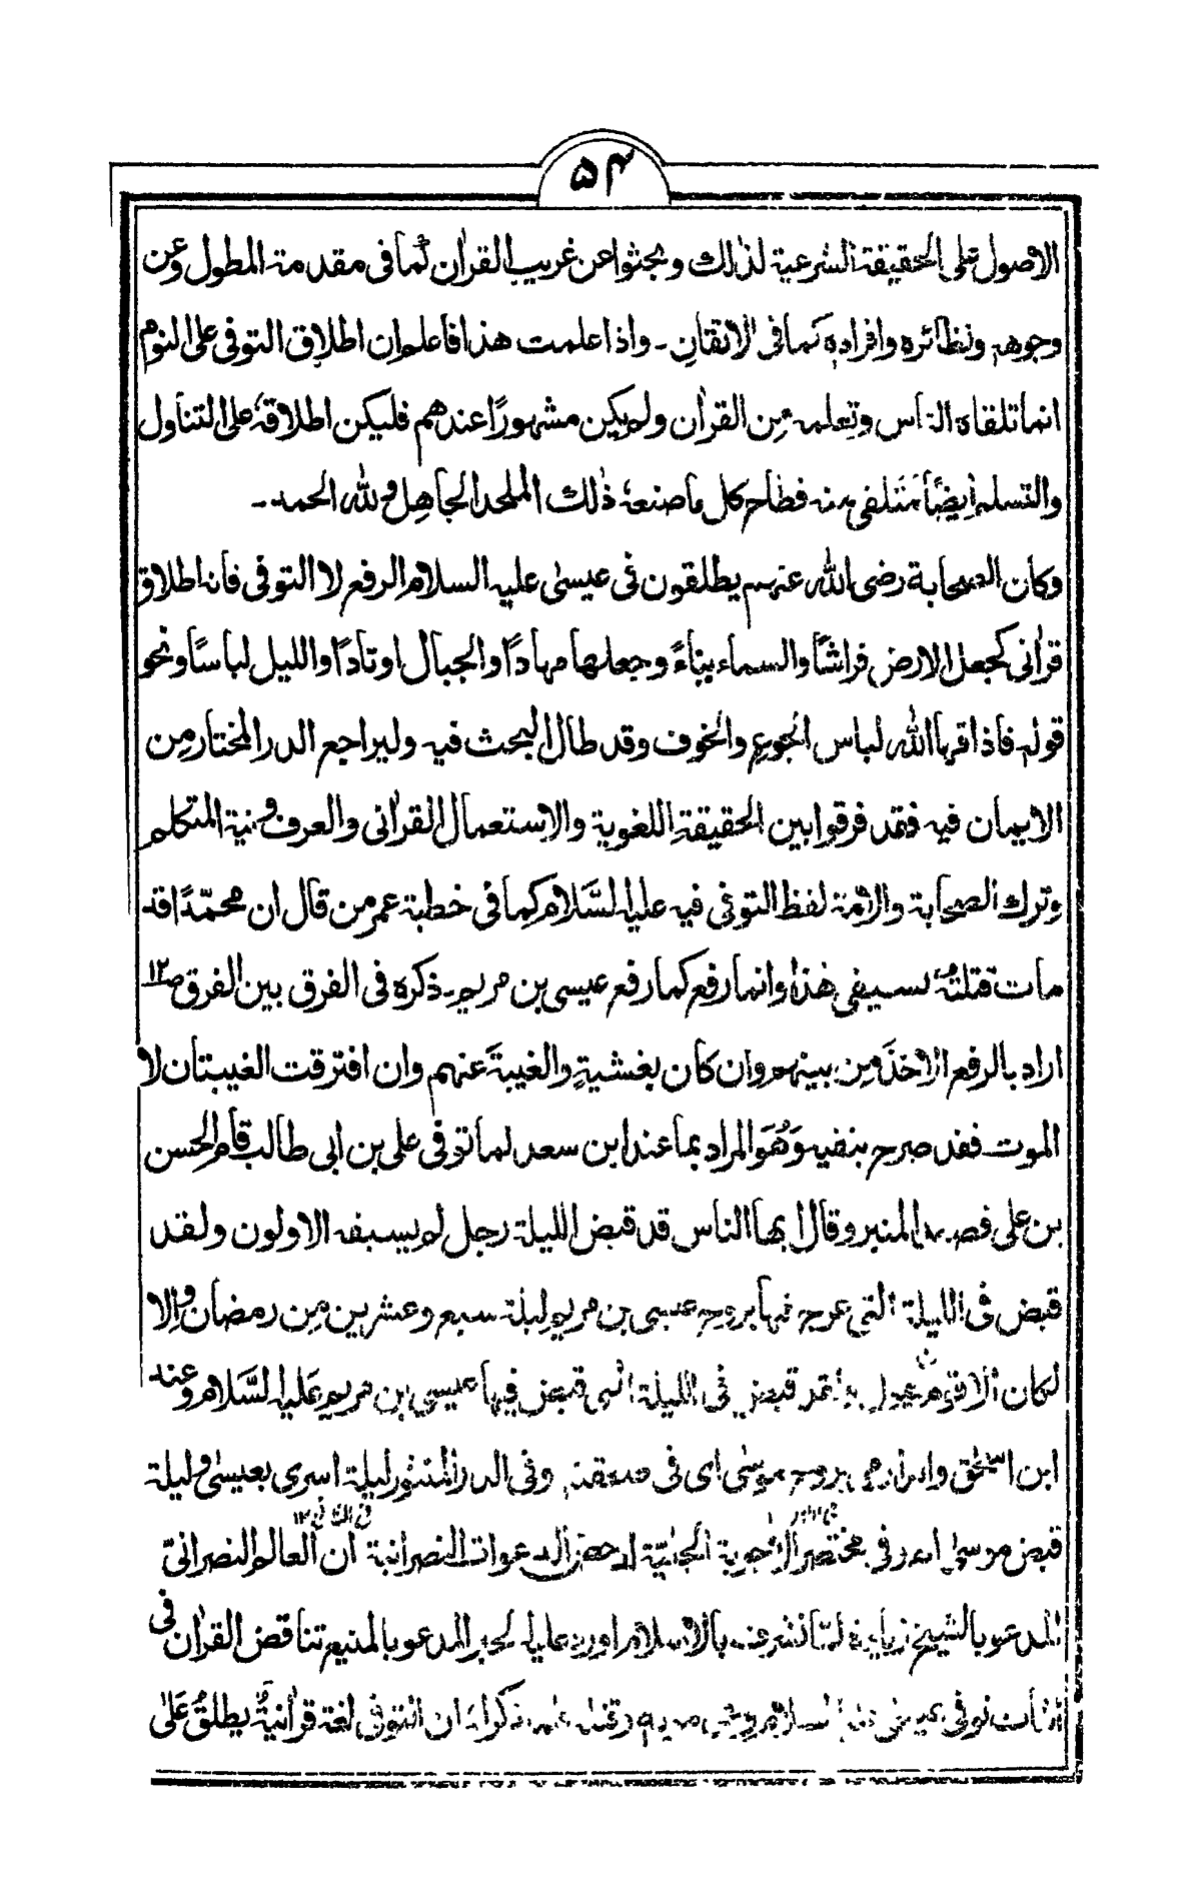 ۵۴
الاصول على الحقيقة الشرعية لذلك وبحثوا عن غريب القراٰن كما فى مقدمة المطول وعن
وجوهه ونظائره وافراده كما فى الاتقان ـ واذا علمت هذا فاعلم ان اطلاق التوفى على النوم
انما تلقاه الناس وتعلمه من القراٰن ولم يكن مشهورًا عندهم فليكن اطلاقهٗ على التناول
والتسلم ايضًا متلقى منه فطاح كل ما صنعهٗ ذٰلك الملحد الجاهل و لله الحمد ـ
وكان الصحابة رضى الله عنهم يطلقون فى عيسىٰ عليه السلام الرفع لا التوفى فانه اطلاق
قراٰنى كجعل الارض فراشًا والسماء بناءً وجعلها مهادًا والجبال اوتادًا والليل لباسًا ونحو
قوله فاذاقها الله لباس الجوع والخوف وقد طال البحث فيه وليراجع الدر المختار من
الايمان فيه فقد فرقوا بين الحقيقة اللغوية والاستعمال القراٰنى والعرف و نية المتكلم
وترك الصحابة والائمة لفظ التوفى فيه عليه السَّلام كما فى خطبة عمر من قال ان محمّدًا قد
مات قتلتهٗ بسيفى هذا وانما رفع كما رفع عيسى بن مريم ـ ذكره فى الفرق بين الفرق ص۱۲
اراد بالرفع الاخذَ من بينهم وان كان بغشيةٍ والغيبةَ عنهم وان افترقت الغيبتان لا
الموت فقد صرح بنفيه وَهُوَ المراد بما عند ابن سعد لما توفى على بن ابى طالب قام الحسن
بن على فصعد المنبر وقال ايها الناس قد قبض الليلة رجل لم يسبقه الاولون ولقد
قبض فى الليلة التى عرج فيها بروح عيسى بن مريم ليلة سبع وعشرين من رمضان والا
لكان الاقرب ان يقول ولقد قبض فى الليلة التى قبض فيها عيسى بن مريم عليه السَّلام وعند
ابن اسحٰق بروح موسٰى اى فى وفى الدر المنثور ليلة اسرى بعيسىٰ و ليلة
قبض موسى وفى مختصر الاجوبة الجلیّة لدحض الدعوات النصرانية ان العالم النصرانىّ
المدعو بالشيخ زيادة لما تشرف بالاسلام اورد عليه الحبر المدعو بالمنيع تناقض القراٰن فى
اثبات توفى ان التوفى لغة قراٰنيةٌ يطلقُ عَلىٰ